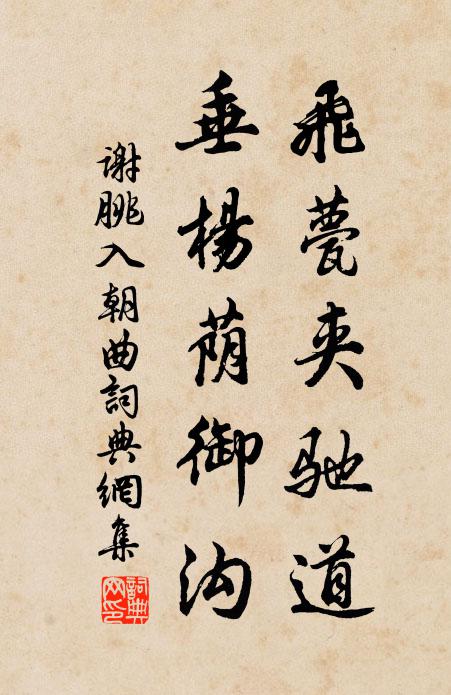 飛甍夾馳道
垂楊荫御沟
謝朓入朝曲詞典網集
詞典网印